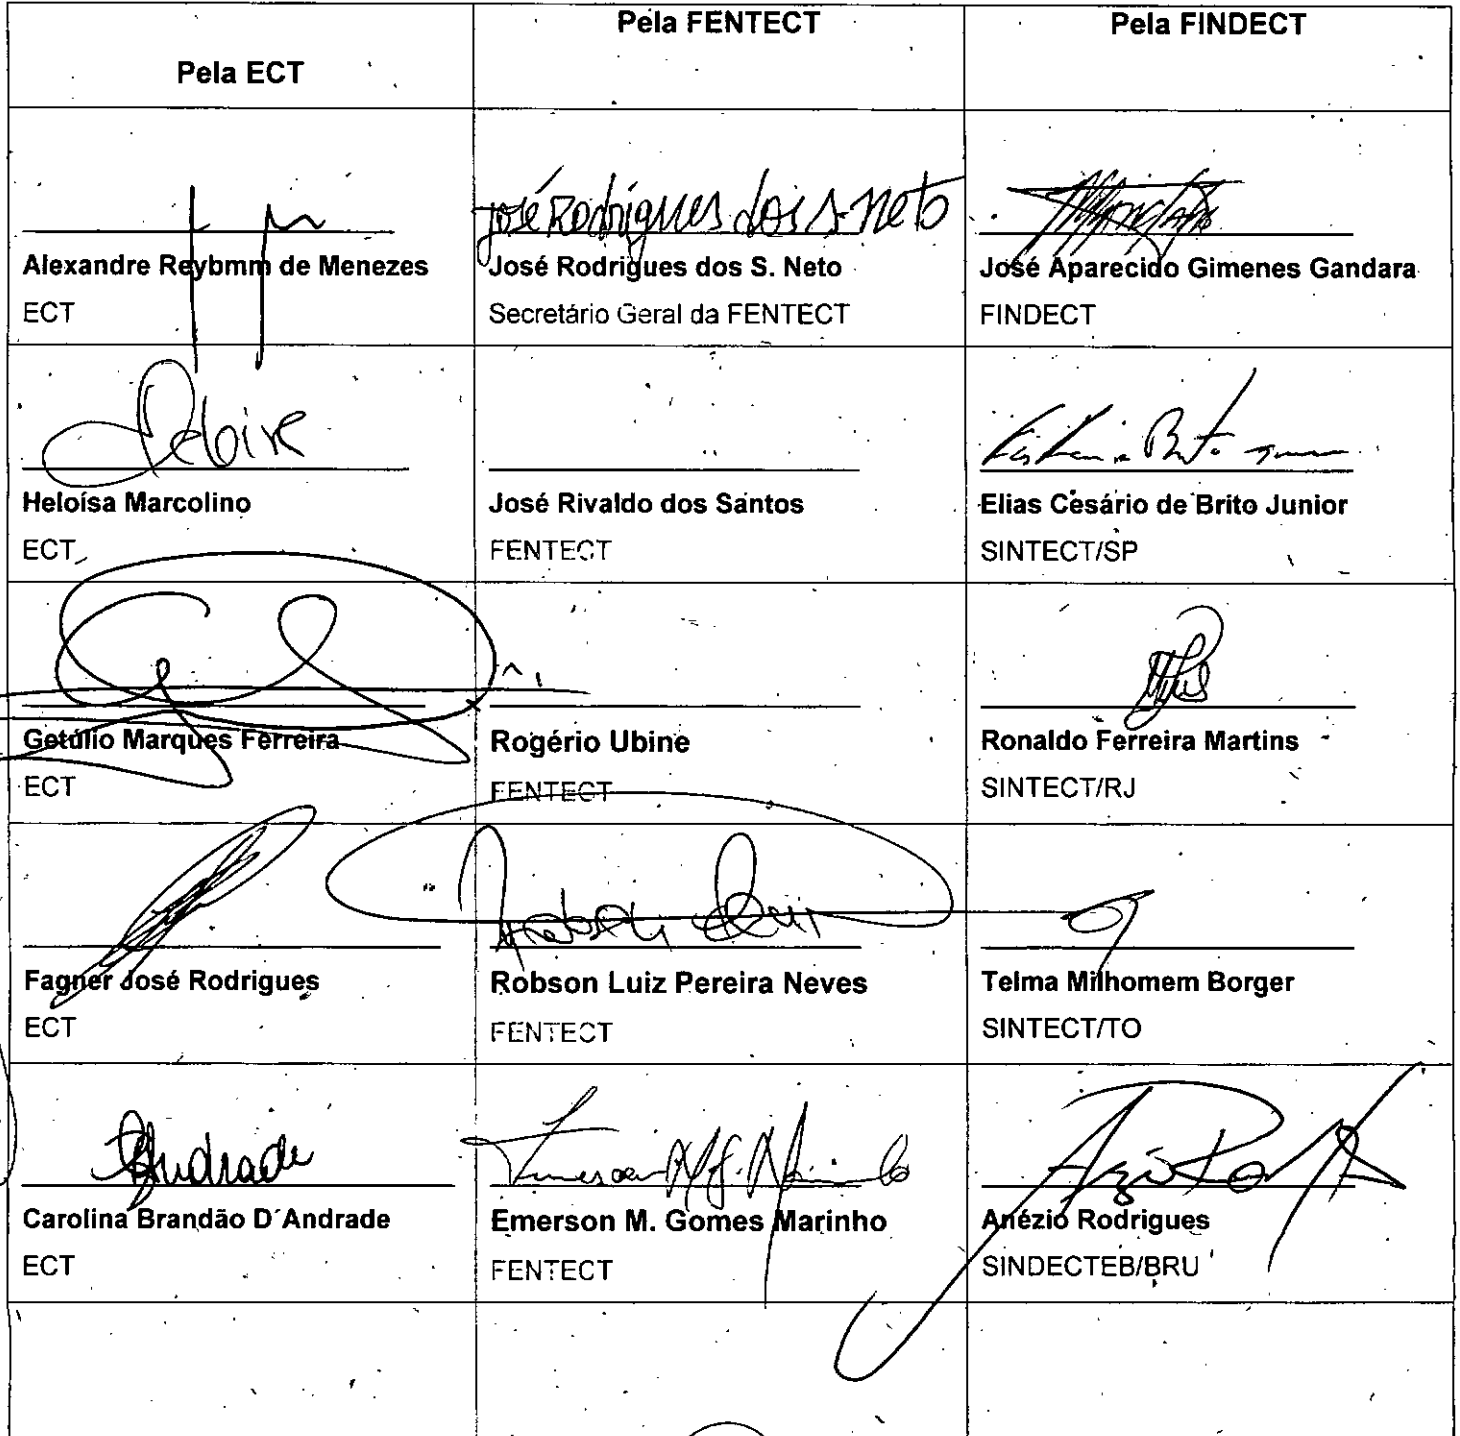 Pela ECT
Pela FENTECT
Pela FINDECT
Alexandre Reybmm de Menezes
ECT
José Rodrigues dos S. Neto
José Rodrigues dos S. Neto
Secretário Geral da FENTECT
José Aparecido Gimenes Gandara
FINDECT
Heloísa Marcolino
ECT
José Rivaldo dos Santos
FENTECT
Elias Cesário de Brito Junior
SINTECT/SP
Getúlio Marques Ferreira
ECT
Rogério Ubine
FENTECT
Ronaldo Ferreira Martins
SINTECT/RJ
Fagner José Rodrigues
ECT
Robson Luiz Pereira Neves
FENTECT
Telma Milhomem Borger
SINTECT/TO
Andrade
Carolina Brandão D´Andrade
ECT
Emerson M. Gomes Marinho
FENTECT
Anézio Rodrigues
SINDECTEB/BRU